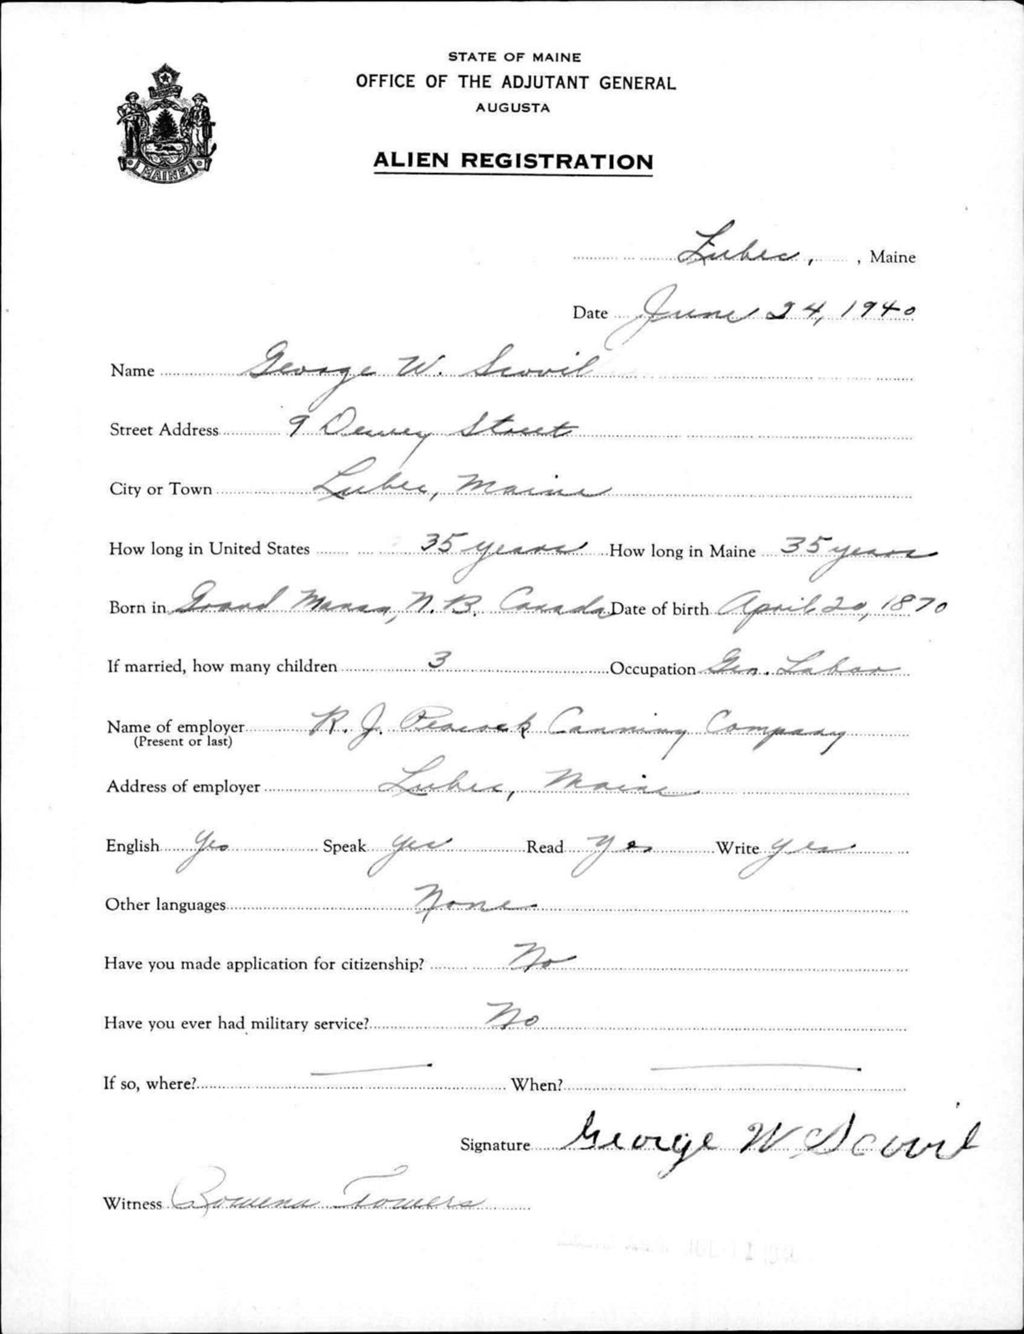 STATE OF MAINE
OFFICE OF THE ADJUTANT GENERAL
AUGUSTA
ALIEN REGISTRATION
MAINE
Lubec, , Maine
Date June 24, 1940
Name George W. Scovil
Street Address 9 Dewey Street
City or Town Lubec, Maine
How long in United States 35 years How long in Maine 35 years
Born in Grand Manan, N. B. Canada Date of birth April 20, 1870
If married, how many children 3 Occupation Gen. Labor
Name of employer R. J. Peacock Canning Company
(Present or last)
Address of employer Lubec, Maine
English Yes Speak Yes Read Yes Write Yes
Other languages None
Have you made application for citizenship? No
Have you ever had military service? No
If so, where? — When? —
Signature George W Scovil
Witness Towers